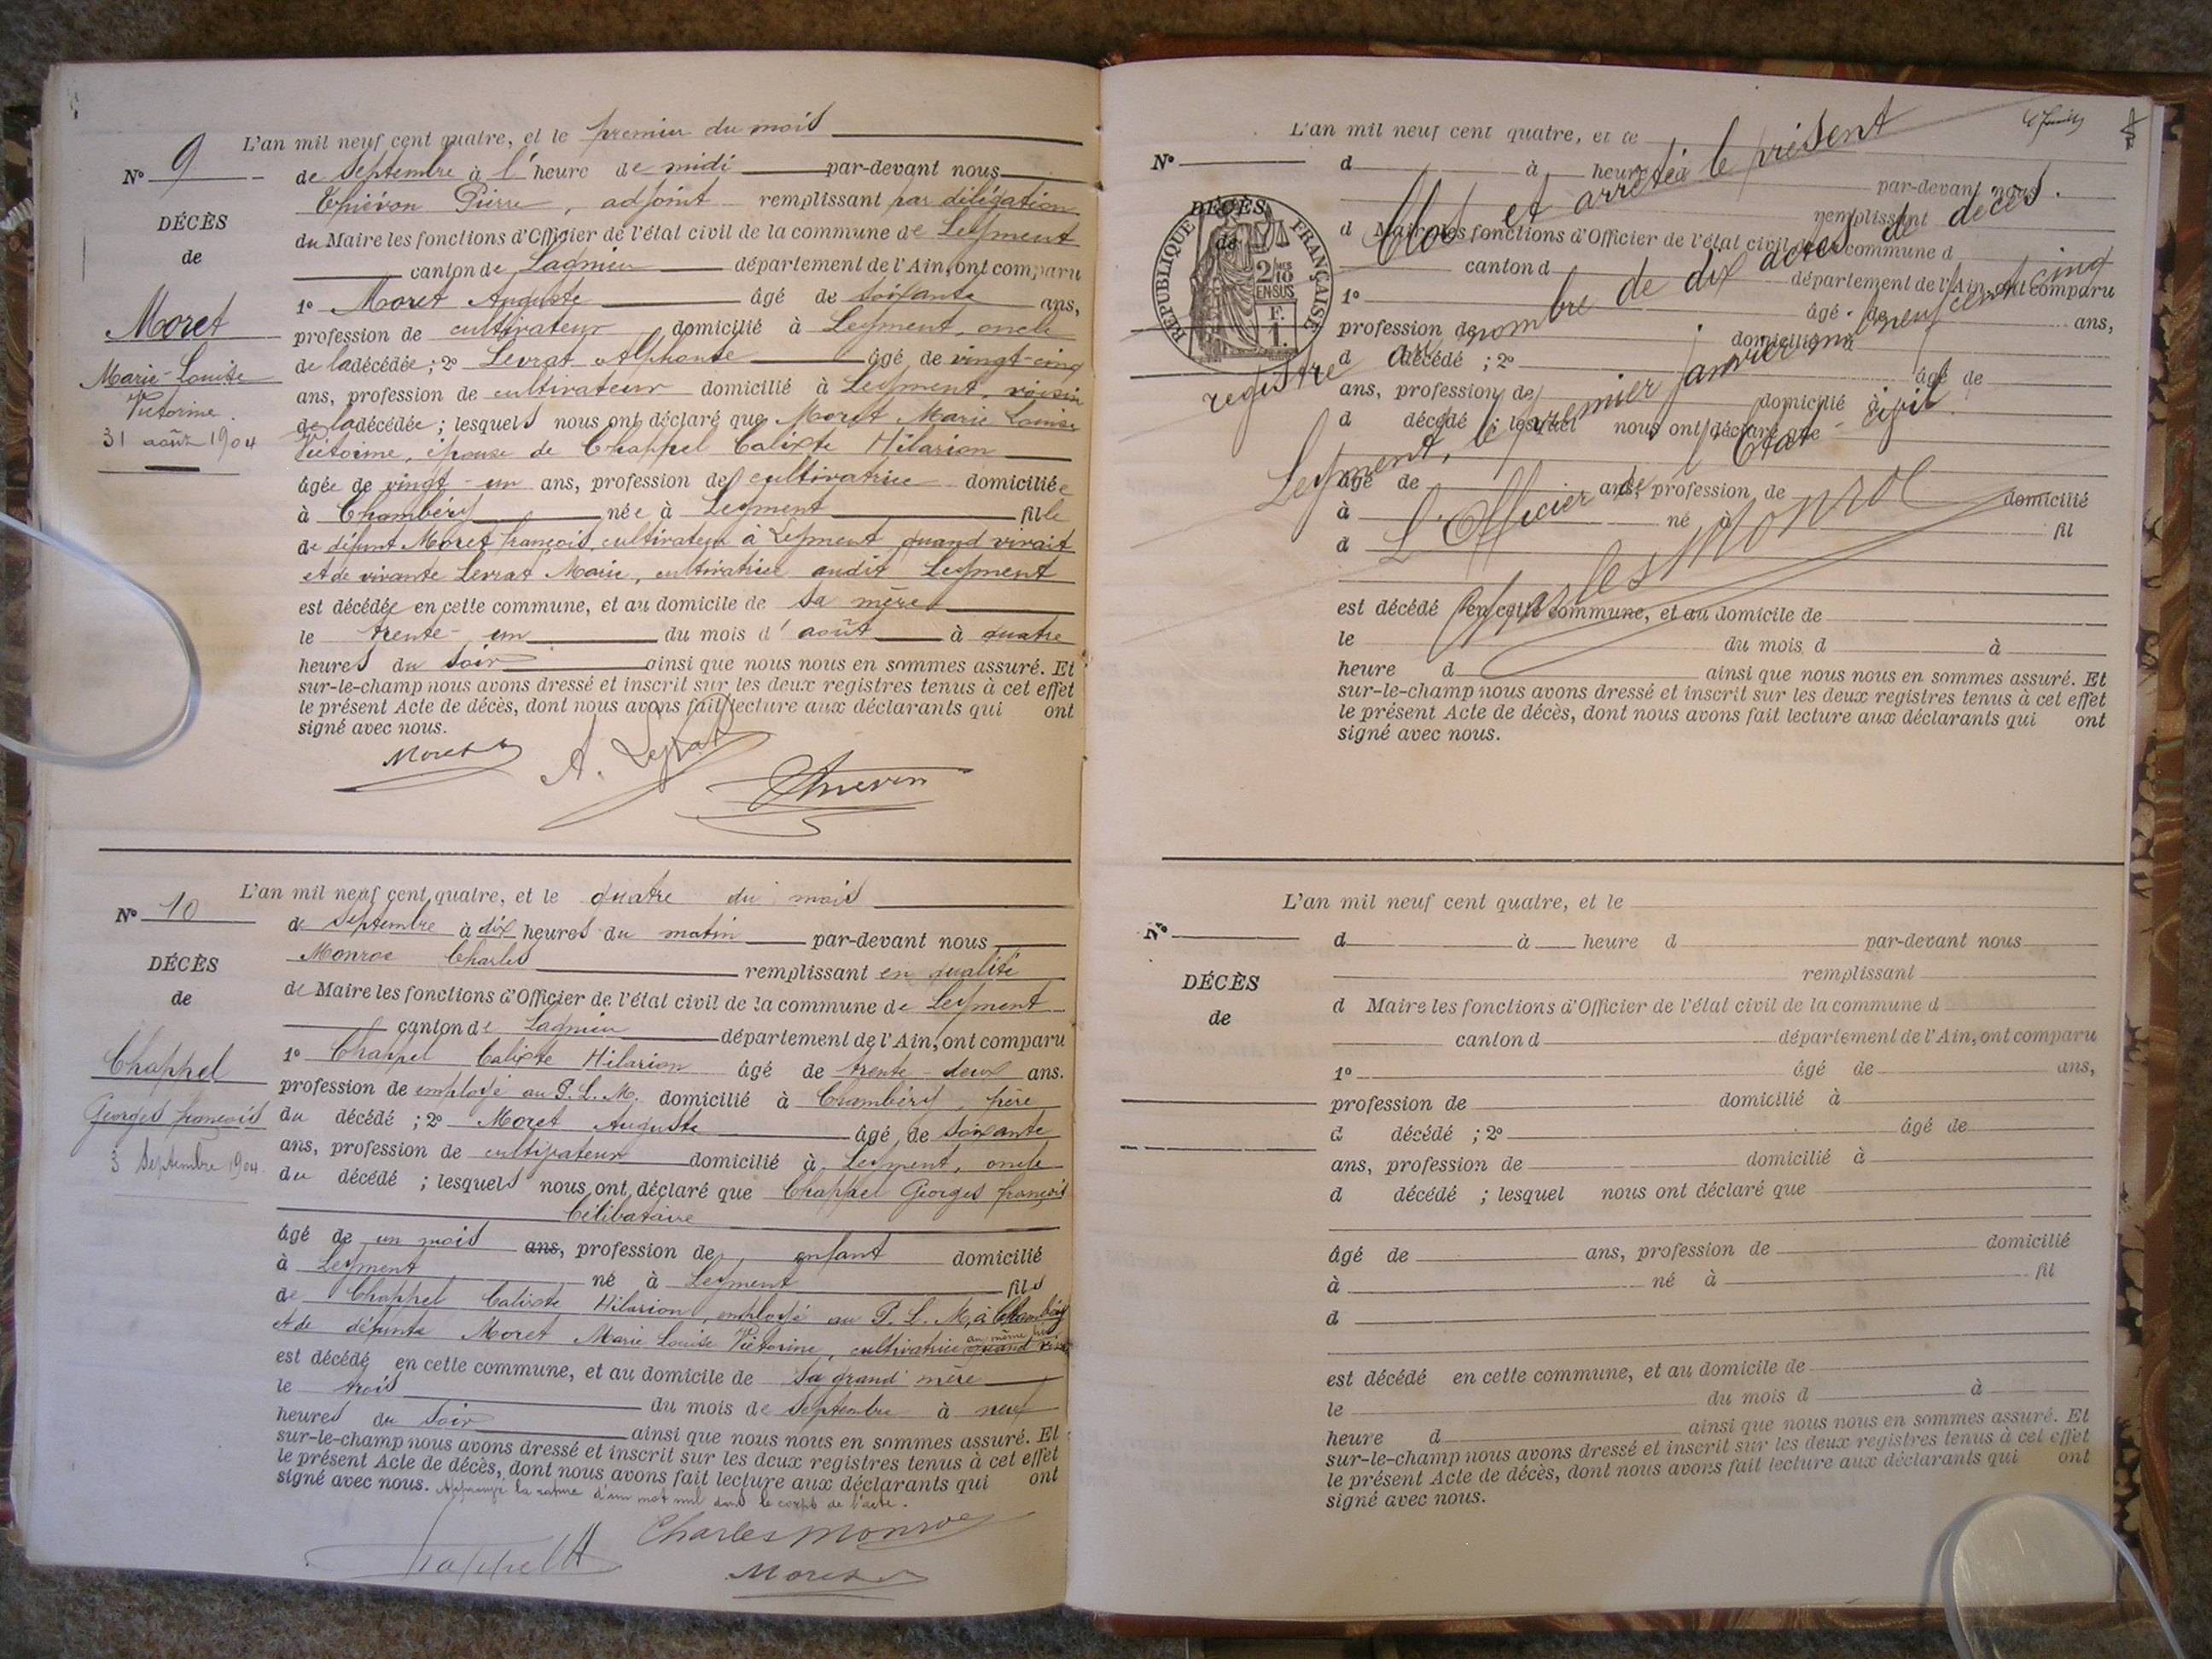 L'an mil neuf cent quatre, et le premier du mois
N° 9
de Septembre à l'heure de midi par-devant nous
Thiévon Pierre, adjoint remplissant par délégation
DÉCÈS
du Maire les fonctions d'Officier de l'état civil de la commune de Leyment
de
canton de Lagnieu département de l'Ain, ont comparu
1° Moret Auguste âgé de soixante ans,
Moret
profession de cultivateur domicilié à Leyment, oncle
de la décédée ; 2° Levrat Alphonse âgé de vingt-cinq
Marie-Louise
ans, profession de cultivateur domicilié à Leyment, voisin
Victorine.
de la décédée ; lesquels nous ont déclaré que Moret Marie Louise
31 août 1904
Victorine, épouse de Chappel Calixte Hilarion
âgée de vingt-un ans, profession de cultivatrice domiciliée
à Chambéry née à Leyment fille
de défunt Moret François, cultivateur à Leyment quand vivait
et de vivante Levrat Marie, cultivatrice audit Leyment
est décédée en cette commune, et au domicile de sa mère
le trente-un du mois d'août à quatre
heures du soir ainsi que nous nous en sommes assuré. Et
sur-le-champ nous avons dressé et inscrit sur les deux registres tenus à cet effet
le présent Acte de décès, dont nous avons fait lecture aux déclarants qui ont
signé avec nous.
Moret
A. Levrat
Thievon
L'an mil neuf cent quatre, et le quatre du mois
N° 10
de Septembre à dix heures du matin par-devant nous
Monroe Charles remplissant en qualité
DÉCÈS
de Maire les fonctions d'Officier de l'état civil de la commune de Leyment
de
canton de Lagnieu département de l'Ain, ont comparu
1° Chappel Calixte Hilarion âgé de trente-deux ans.
Chappel
profession de employé au P. L. M. domicilié à Chambéry, père
Georges François
du décédé ; 2° Moret Auguste âgé de soixante
ans, profession de cultivateur domicilié à Leyment, oncle
3 Septembre 1904
du décédé ; lesquels nous ont déclaré que Chappel Georges François
Célibataire
âgé de un mois ans, profession de enfant domicilié
à Leyment né à Leyment fils
de Chappel Calixte Hilarion, employé au P. L. M. à Chambéry
et de défunte Moret Marie Louise Victorine, cultivatrice au même lieu quand
est décédé en cette commune, et au domicile de sa grand'mère
le trois du mois de Septembre à neuf
heures du soir ainsi que nous nous en sommes assuré. Et
sur-le-champ nous avons dressé et inscrit sur les deux registres tenus à cet effet
le présent Acte de décès, dont nous avons fait lecture aux déclarants qui ont
signé avec nous. Approuvé la rature d'un mot nul dans le corps de l'acte.
Charles Monroe
Chappel
Moret
L'an mil neuf cent quatre, et le
N°
d à heure par-devant nous
remplissant
DÉCÈS
de
d Maire les fonctions d'Officier de l'état civil de la commune d
canton d département de l'Ain, ont comparu
RÉPUBLIQUE FRANÇAISE
2/10MES
EN SUS
F.
1.
1° âgé de ans,
profession de domicilié à
d décédé ; 2° âgé de
ans, profession de domicilié à
d décédé ; lesquel nous ont déclaré que
âgé de ans, profession de domicilié
à né à fil
d
Clos et arrêté le présent
registre au nombre de dix actes de décès.
Leyment, le premier janvier mil neuf cent cinq
L'Officier de l'Etat-civil
Charles Monroe
est décédé en cette commune, et au domicile de
le du mois d à
heure d ainsi que nous nous en sommes assuré. Et
sur-le-champ nous avons dressé et inscrit sur les deux registres tenus à cet effet
le présent Acte de décès, dont nous avons fait lecture aux déclarants qui ont
signé avec nous.
L'an mil neuf cent quatre, et le
N°
d à heure d par-devant nous
remplissant
DÉCÈS
de
d Maire les fonctions d'Officier de l'état civil de la commune d
canton d département de l'Ain, ont comparu
1° âgé de ans,
profession de domicilié à
d décédé ; 2° âgé de
ans, profession de domicilié à
d décédé ; lesquel nous ont déclaré que
âgé de ans, profession de domicilié
à né à fil
d
est décédé en cette commune, et au domicile de
le du mois d à
heure d ainsi que nous nous en sommes assuré. Et
sur-le-champ nous avons dressé et inscrit sur les deux registres tenus à cet effet
le présent Acte de décès, dont nous avons fait lecture aux déclarants qui ont
signé avec nous.